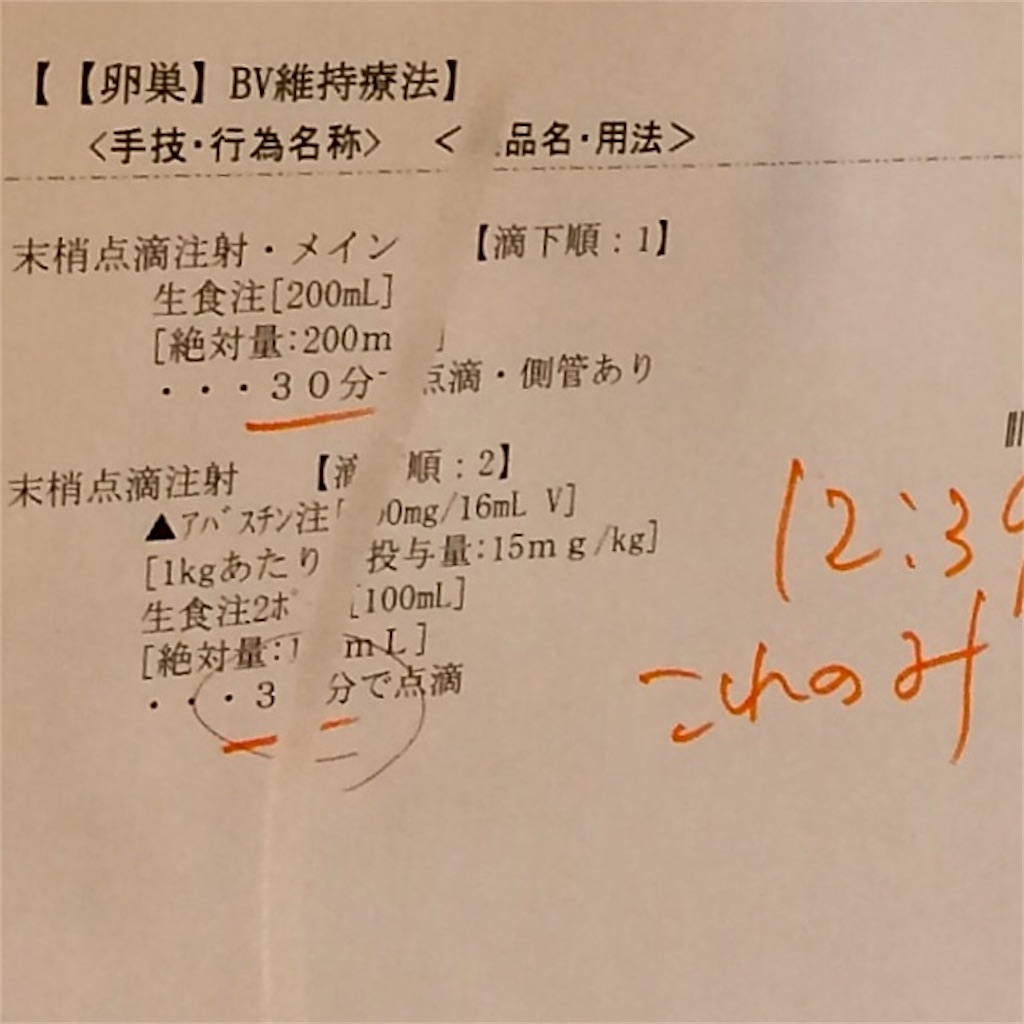 【【卵巣】BV維持療法】
<手技・行為名称> < 品名・用法>
末梢点滴注射・メイン 【滴下順:1】
生食注[200mL]
[絶対量:200m ]
・・・30分 点滴・側管あり
末梢点滴注射 【滴 順:2】
▲アバスチン注[ 0mg/16mL V]
[1kgあたり 投与量:15mg/kg]
生食注2ポ [100mL]
[絶対量:1 mL]
・・・3 分で点滴
12:39
これのみ